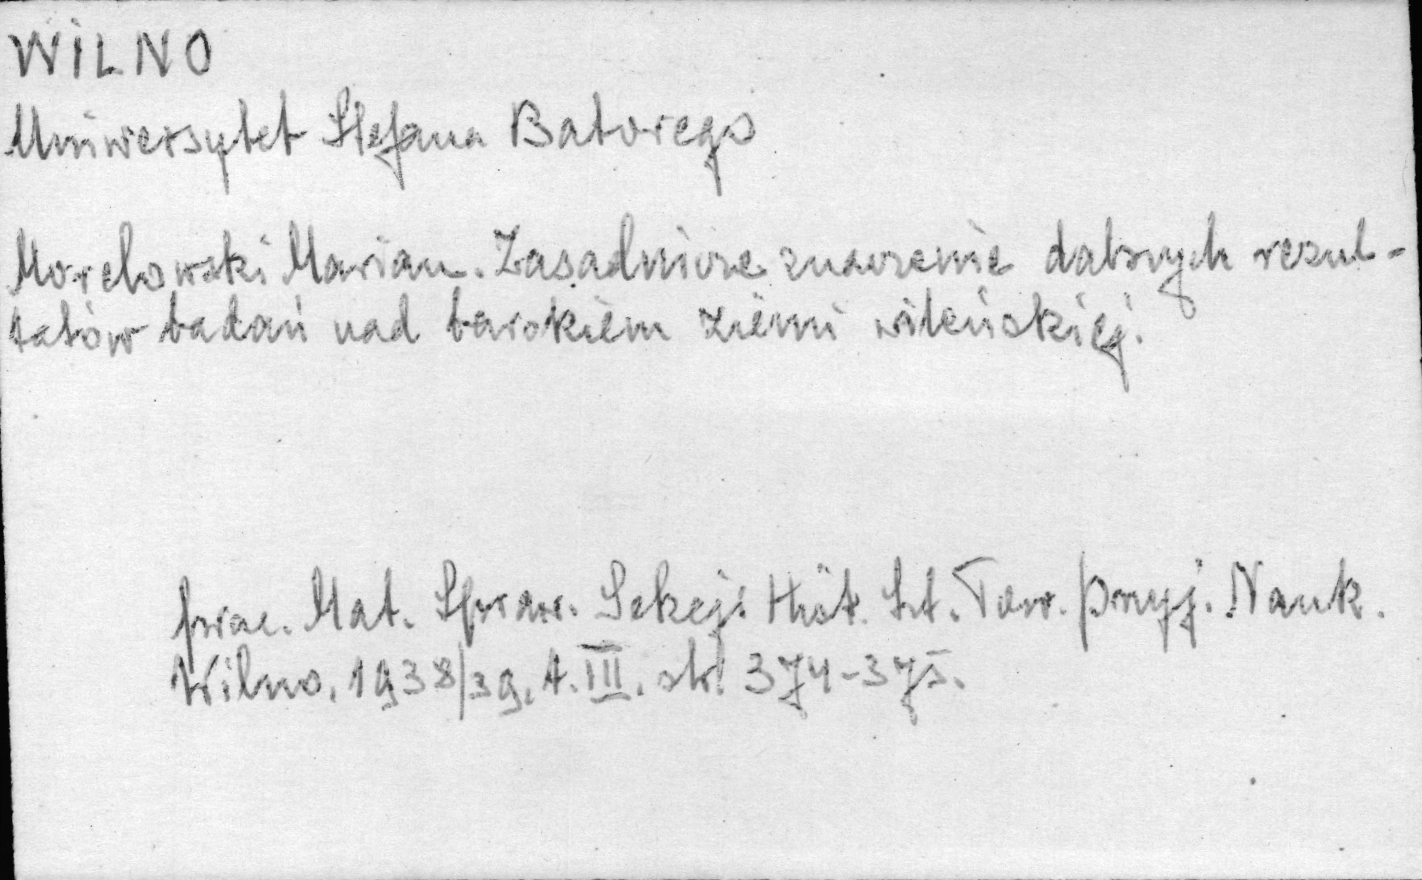 WILNO
Uniwersytet Stefana Batorego
Morelowski Marian. Zasadnicze znaczenie dalszych rezul-
tatów badań nad barokiem ziemi wileńskiej.
Prac. Mat. Spraw. Sekcji Hist. Szt. Tow. Przyj. Nauk.
Wilno, 1938/39, t. III. str. 374-375.